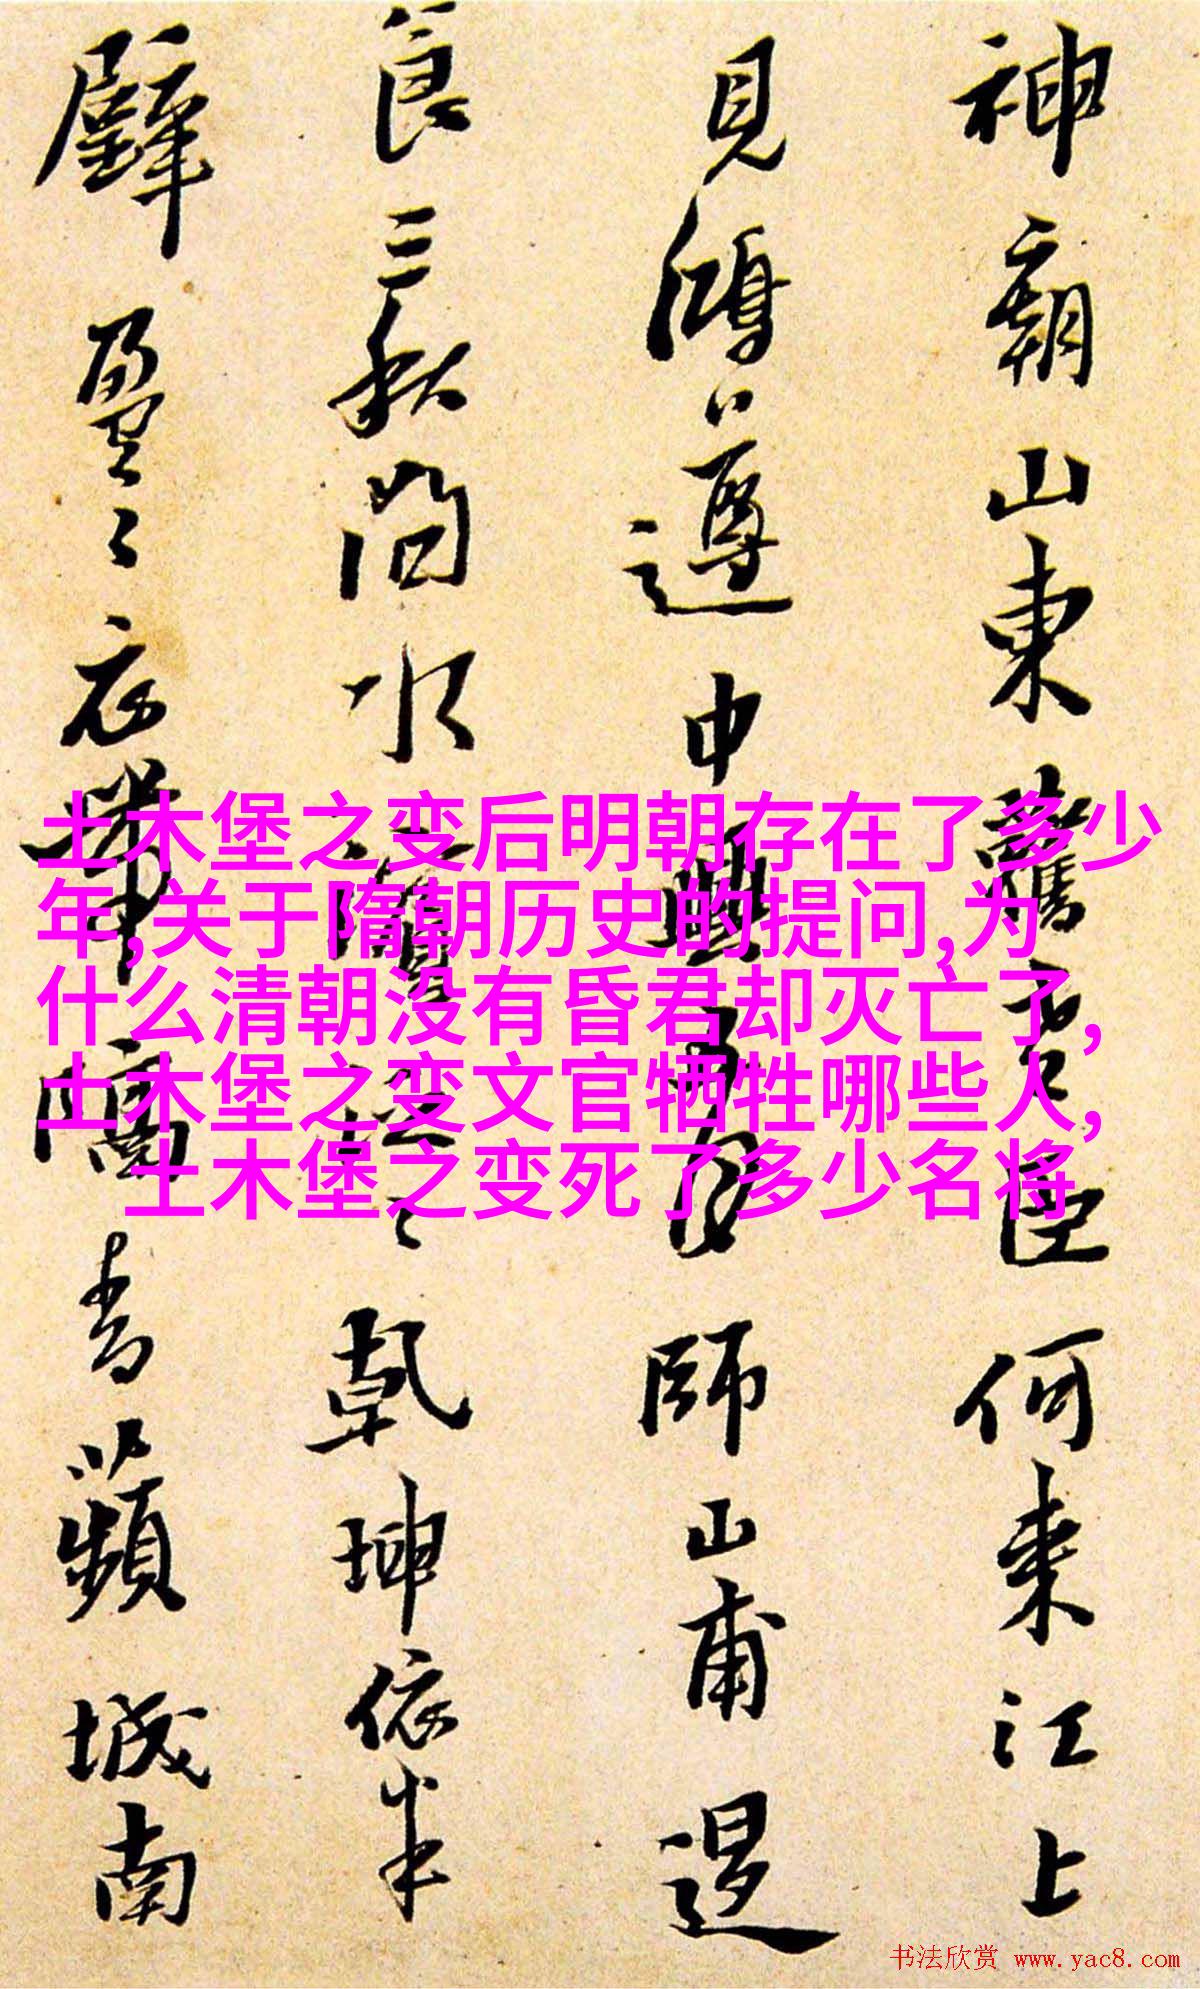 神廟山東舊言臣何来江上
見鴻遵中興師山甫遐
食三秋問水乾坤依半
壁盈々衣帶隔青蘋城南
土木堡之变后明朝存在了多少
年,关于隋朝历史的提问,为
什么清朝没有昏君却灭亡了,
土木堡之变文官牺牲哪些人,
土木堡之变死了多少名将
书法欣赏 www.yac8.com